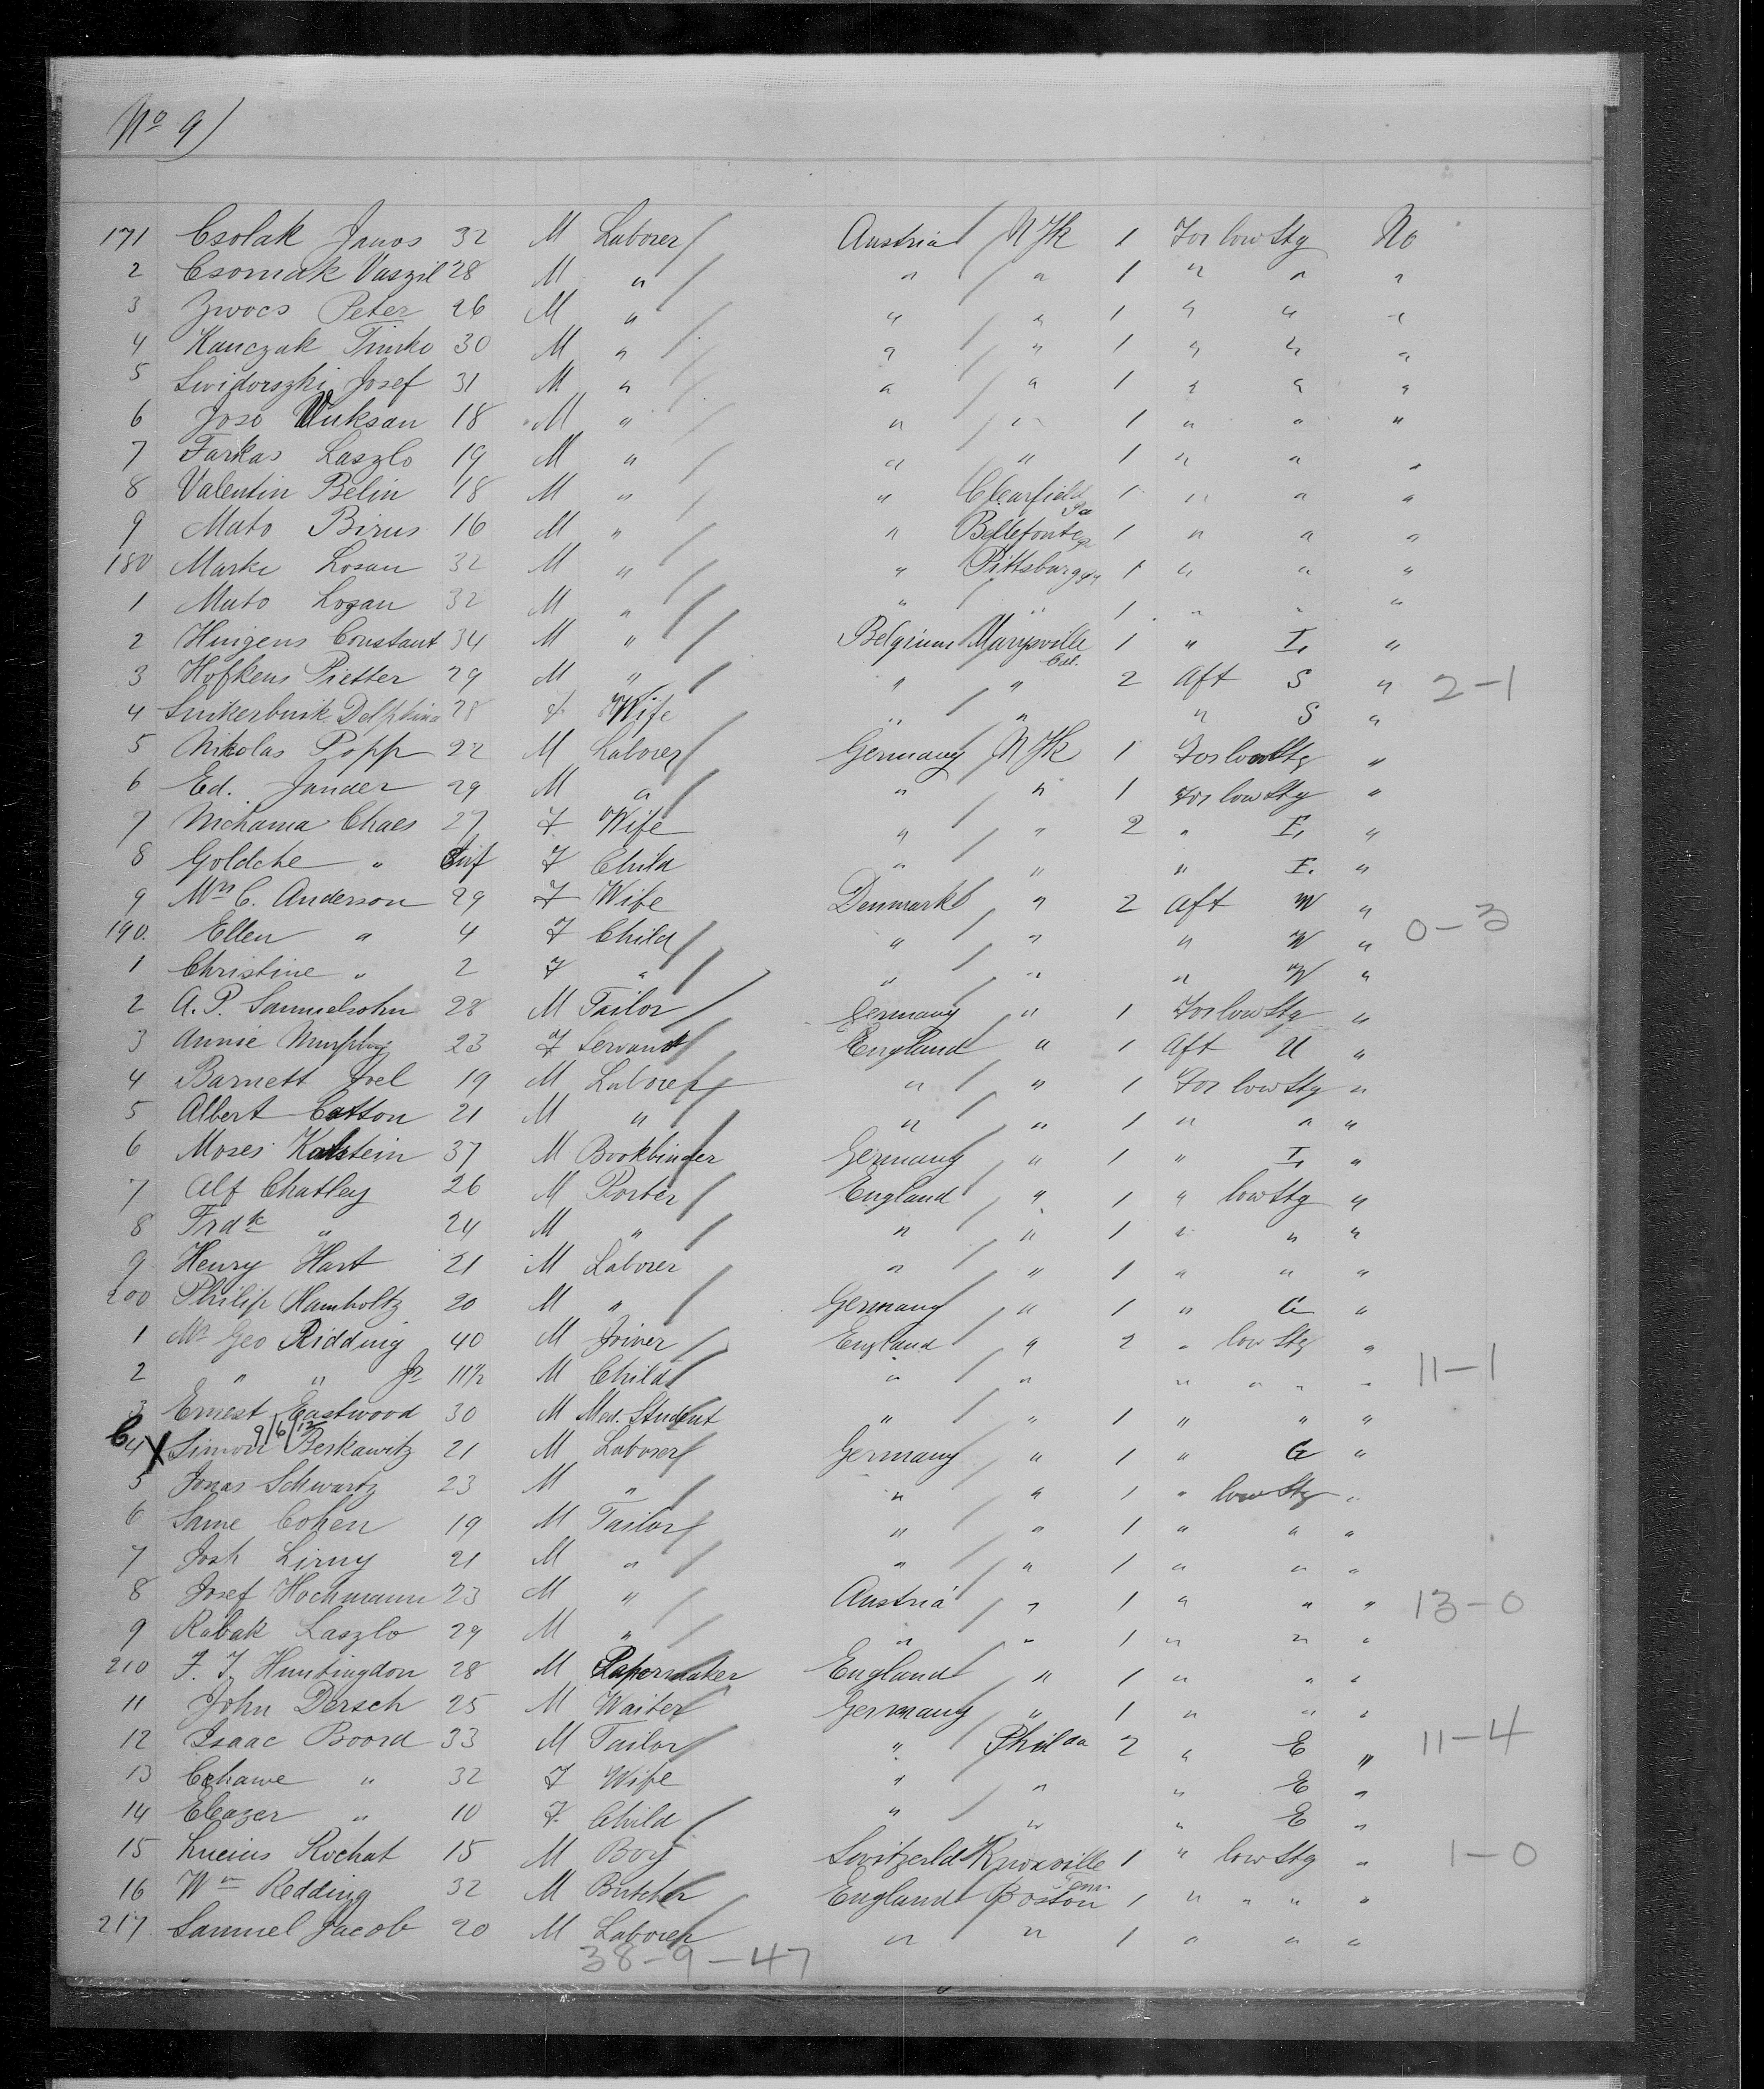 No 9)
171 Csolak Janos 32 M Laborer Austria N Yk 1 For low Stg No
2 Csomak Vaszil 28 M " " " 1 " " "
3 Zwocs Peter 26 M " " " 1 " " "
4 Kanczak Timko 30 M " " " 1 " " "
5 Swidorszki Josef 31 M " " " 1 " " "
6 Joso Vuksan 18 M " " " 1 " " "
7 Farkas Laszlo 19 M " " " 1 " " "
8 Valentin Belin 18 M " " Clearfield Pa 1 " " "
9 Mato Birus 16 M " " Bellefonte Pa 1 " " "
180 Marke Losan 32 M " " Pittsburg Pa 1 " " "
1 Mato Logan 32 M " " " 1 " " "
2 Huigens Constant 34 M " Belgium Marysville Cal. 1 " I, "
3 Hofkens Pietter 29 M " " " 2 Aft S " 2-1
4 Delphina 28 f Wife " " " S "
5 Nikolas Popp 22 M Laborer Germany N Yk 1 For low Stg "
6 Ed. Jander 29 M " " " 1 For low Stg "
7 Nichama Chaes 27 F Wife " " 2 " I, "
8 Goldche " Inf F Child " " " I. "
9 Mrs C. Anderson 29 F Wife Denmark " 2 Aft W "
190. Ellen " 4 F Child " " " W " 0-3
1 Christine " 2 F " " " " W "
2 A. P. Samuelsohn 28 M Tailor Germany " 1 For low Stg "
3 Annie Murphy 23 F Servant England " 1 Aft U "
4 Barnett Joel 19 M Laborer " " 1 For low Stg "
5 Albert Catton 21 M " " " 1 " " "
6 Moses Kalstein 37 M Bookbinder Germany " 1 " I, "
7 Alf Chatley 26 M Porter England " 1 " low Stg "
8 Frdk " 24 M " " " 1 " " "
9 Henry Hart 21 M Laborer " " 1 " " "
200 Philip Hamholtz 20 M " Germany " 1 " G "
1 Mr Geo Ridding 40 M Joiner England " 2 " low Stg "
2 " " Jr 11½ M Child " " " " " " 11-1
3 Ernest Eastwood 30 M Med. Student " " 1 " " "
9/6/12
C 4 X Simon Berkawitz 21 M Laborer Germany " 1 " G "
5 Jonas Schwartz 23 M " " " 1 " low Stg "
6 Same Cohen 19 M Tailor " " 1 " " "
7 Josh Lirny 21 M " " " 1 " " "
8 Josef Hochmann 23 M " Austria " 1 " " " 13-0
9 Rabak Laszlo 29 M " " " 1 " " "
210 F. J. Huntingdon 28 M Papermaker England " 1 " " "
11 John Dersch 25 M Waiter Germany " 1 " " "
12 Isaac Boord 33 M Tailor " Philda 2 " E " 11-4
13 Chawe " 32 F Wife " " " E "
14 Eleazer " 10 F. Child " " " E "
15 Lucius Rochat 15 M Boy Switzerld Knoxville Tenn. 1 " low Stg " 1-0
16 Wm Redding 32 M Butcher England Boston 1 " " " "
217 Samuel Jacob 20 M Laborer " " 1 " " "
38-9-47